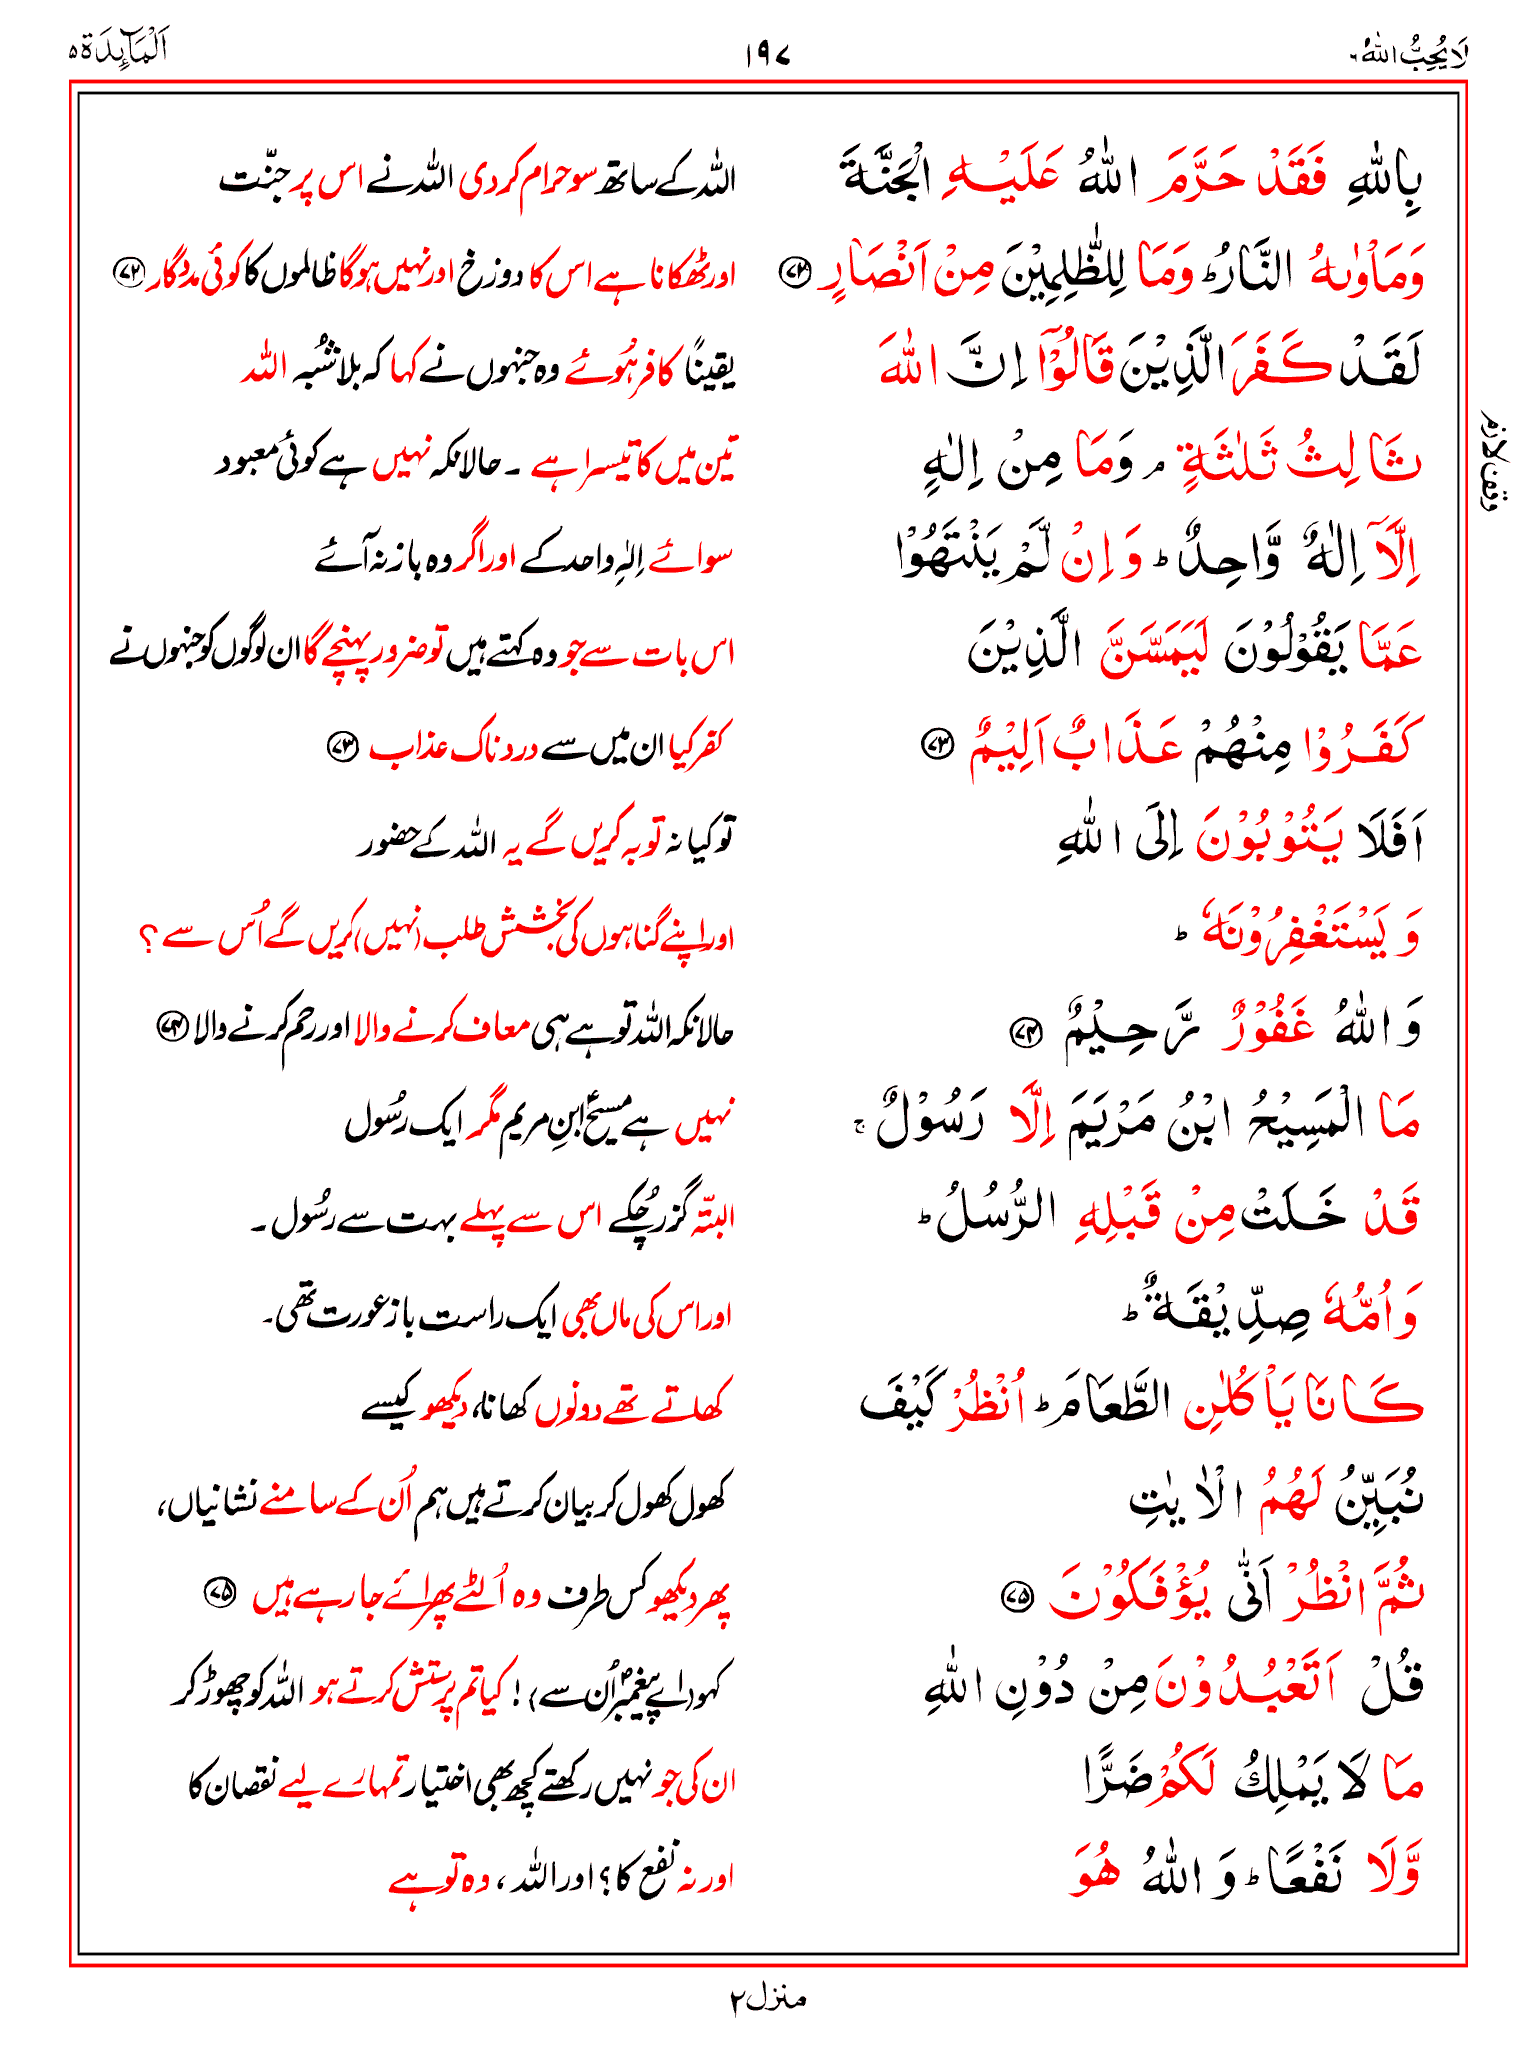 لَا یُحِبُّ اللّٰهُ ٦
١٩٧
اَلْمَآئِدَة ٥
بِاللّٰهِ فَقَدْ حَرَّمَ اللّٰهُ عَلَیْهِ الْجَنَّةَ
اللہ کے ساتھ سو حرام کر دی اللہ نے اس پر جنّت
وَمَاْوٰىهُ النَّارُ ؕ وَمَا لِلظّٰلِمِیْنَ مِنْ اَنْصَارٍ ﴿۷۲﴾
اور ٹھکانا ہے اس کا دوزخ اور نہیں ہوگا ظالموں کا کوئی مددگار ﴿۷۲﴾
لَقَدْ كَفَرَ الَّذِیْنَ قَالُوْۤا اِنَّ اللّٰهَ
یقینًا کافر ہُوئے وہ جنہوں نے کہا کہ بلاشُبہ اللہ
ثَالِثُ ثَلٰثَةٍ ۘ وَمَا مِنْ اِلٰهٍ
تین میں کا تیسرا ہے ۔ حالانکہ نہیں ہے کوئی معبود
وقف لازم
اِلَّاۤ اِلٰهٌ وَّاحِدٌ ؕ وَاِنْ لَّمْ یَنْتَهُوْا
سوائے اِلٰہِ واحد کے اور اگر وہ باز نہ آئے
عَمَّا یَقُوْلُوْنَ لَیَمَسَّنَّ الَّذِیْنَ
اس بات سے جو وہ کہتے ہیں تو ضرور پہنچے گا ان لوگوں کو جنہوں نے
كَفَرُوْا مِنْهُمْ عَذَابٌ اَلِیْمٌ ﴿۷۳﴾
کفر کیا ان میں سے دردناک عذاب ﴿۷۳﴾
اَفَلَا یَتُوْبُوْنَ اِلَى اللّٰهِ
تو کیا نہ توبہ کریں گے یہ اللہ کے حضور
وَ یَسْتَغْفِرُوْنَهٗ ؕ
اور اپنے گناہوں کی بخشش طلب (نہیں) کریں گے اُس سے ؟
وَ اللّٰهُ غَفُوْرٌ رَّحِیْمٌ ﴿۷۴﴾
حالانکہ اللہ تو ہے ہی معاف کرنے والا اور رحم کرنے والا ﴿۷۴﴾
مَا الْمَسِیْحُ ابْنُ مَرْیَمَ اِلَّا رَسُوْلٌ ۚ
نہیں ہے مسیحؑ ابنِ مریم مگر ایک رسُول
قَدْ خَلَتْ مِنْ قَبْلِهِ الرُّسُلُ ؕ
البتّہ گزر چُکے اس سے پہلے بہت سے رسُول ۔
وَ اُمُّهٗ صِدِّیْقَةٌ ؕ
اور اس کی ماں بھی ایک راست باز عورت تھی ۔
كَانَا یَاْكُلٰنِ الطَّعَامَ ؕ اُنْظُرْ كَیْفَ
کھاتے تھے دونوں کھانا، دیکھو کیسے
نُبَیِّنُ لَهُمُ الْاٰیٰتِ
کھول کھول کر بیان کرتے ہیں ہم اُن کے سامنے نشانیاں،
ثُمَّ انْظُرْ اَنّٰى یُؤْفَكُوْنَ ﴿۷۵﴾
پھر دیکھو کس طرف وہ اُلٹے پھرائے جا رہے ہیں ﴿۷۵﴾
قُلْ اَتَعْبُدُوْنَ مِنْ دُوْنِ اللّٰهِ
کہو (اے پیغمبرؐ اُن سے) ! کیا تم پرستش کرتے ہو اللہ کو چھوڑ کر
مَا لَا یَمْلِكُ لَكُمْ ضَرًّا
ان کی جو نہیں رکھتے کچھ بھی اختیار تمہارے لیے نقصان کا
وَّلَا نَفْعًا ؕ وَ اللّٰهُ هُوَ
اور نہ نفع کا؟ اور اللہ ، وہ تو ہے
منزل ۲